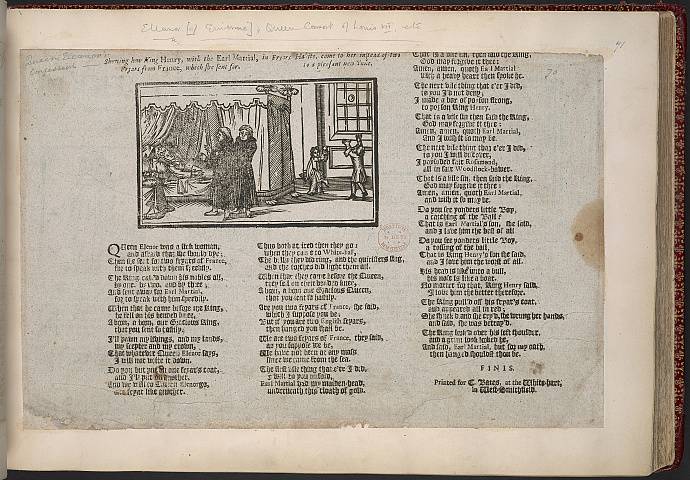 Eleanor [of Guienne], Queen Consort of Louis VII, etc
41
Queen Eleanor's
Confession
70
Shewing how King Henry, with the Earl Martial, in Fryars Habits, came to her instead of two
Fryars from France, which she sent for.
to a pleasant new Tune.
QUeen Elenor was a sick woman,
and afraid that she should dye;
Then she sent for two fryars of France,
for to speak with them speedily.
The King call'd down his nobles all,
by one, by two, and by three;
And sent away for Earl Martial,
for to speak with him speedily.
When that he came before the King,
he fell on his bended knee,
A boon, a boon, our Gracious King,
that you sent so hastily.
I'll pawn my livings, and my lands,
my scepter and my crown,
That whatever Queen Elenor says,
I will not write it down.
Do you but put on one fryar's coat,
and I'll put on another.
And we will to Queen Elenor go,
one fryar like another.
Thus both attired then they go:
when they came to White-hall,
The bells they did ring, and the quiristers sing,
and the torches did light them all.
When that they came before the Queen,
they fell on their bended knee,
A boon, a boon our Gracious Queen,
that you sent so hastily.
Are you two fryars of France, she said,
which I suppose you be,
But if you are two English fryars,
then hanged you shall be.
We are two fryars of France, they said,
as you suppose we be,
We have not been at any mass
since we came from the sea.
The first vile thing that e'er I did,
I will to you unfold,
Earl Martial had my maiden-head,
underneath this cloath of gold.
That is a vile sin, then said the King,
God may forgive it thee:
Amen, amen, quoth Earl Martial
with a heavy heart then spoke he.
The next vile thing that e'er I did,
to you I'd not deny;
I made a box of poyson strong,
to poyson King Henry.
That is a vile sin then said the King,
God may forgive it thee:
Amen, amen, quoth Earl Martial,
And I wish it so may be.
The next vile thing that e'er I did,
to you I will discover,
I poysoned fair Rosamond,
all in fair Woodstock-bower.
That is a vile sin, then said the King,
God may forgive it thee:
Amen, amen, quoth Earl Martial,
and I wish it so may be.
Do you see yonders little Boy,
a catching of the Ball?
That is Earl Martial's son, she said,
and I love him the best of all
Do you see yonders little Boy,
a tossing of the ball,
That is King Henry's son she said,
and I love him the worst of all.
His head is like unto a bull,
his nose is like a boar,
No matter for that, King Henry said,
I love him the better therefore.
The King pull'd off his fryar's coat,
and appeared all in red;
She shriek'd and she cry'd, she wrung her hands,
and said, she was betray'd.
The King look'd over his left shoulder,
and a grim look looked he,
And said, Earl Martial, but for my oath,
then hanged shouldst thou be.
FINIS.
Printed for C. Bates, at the White-hart,
in West-Smithfield.